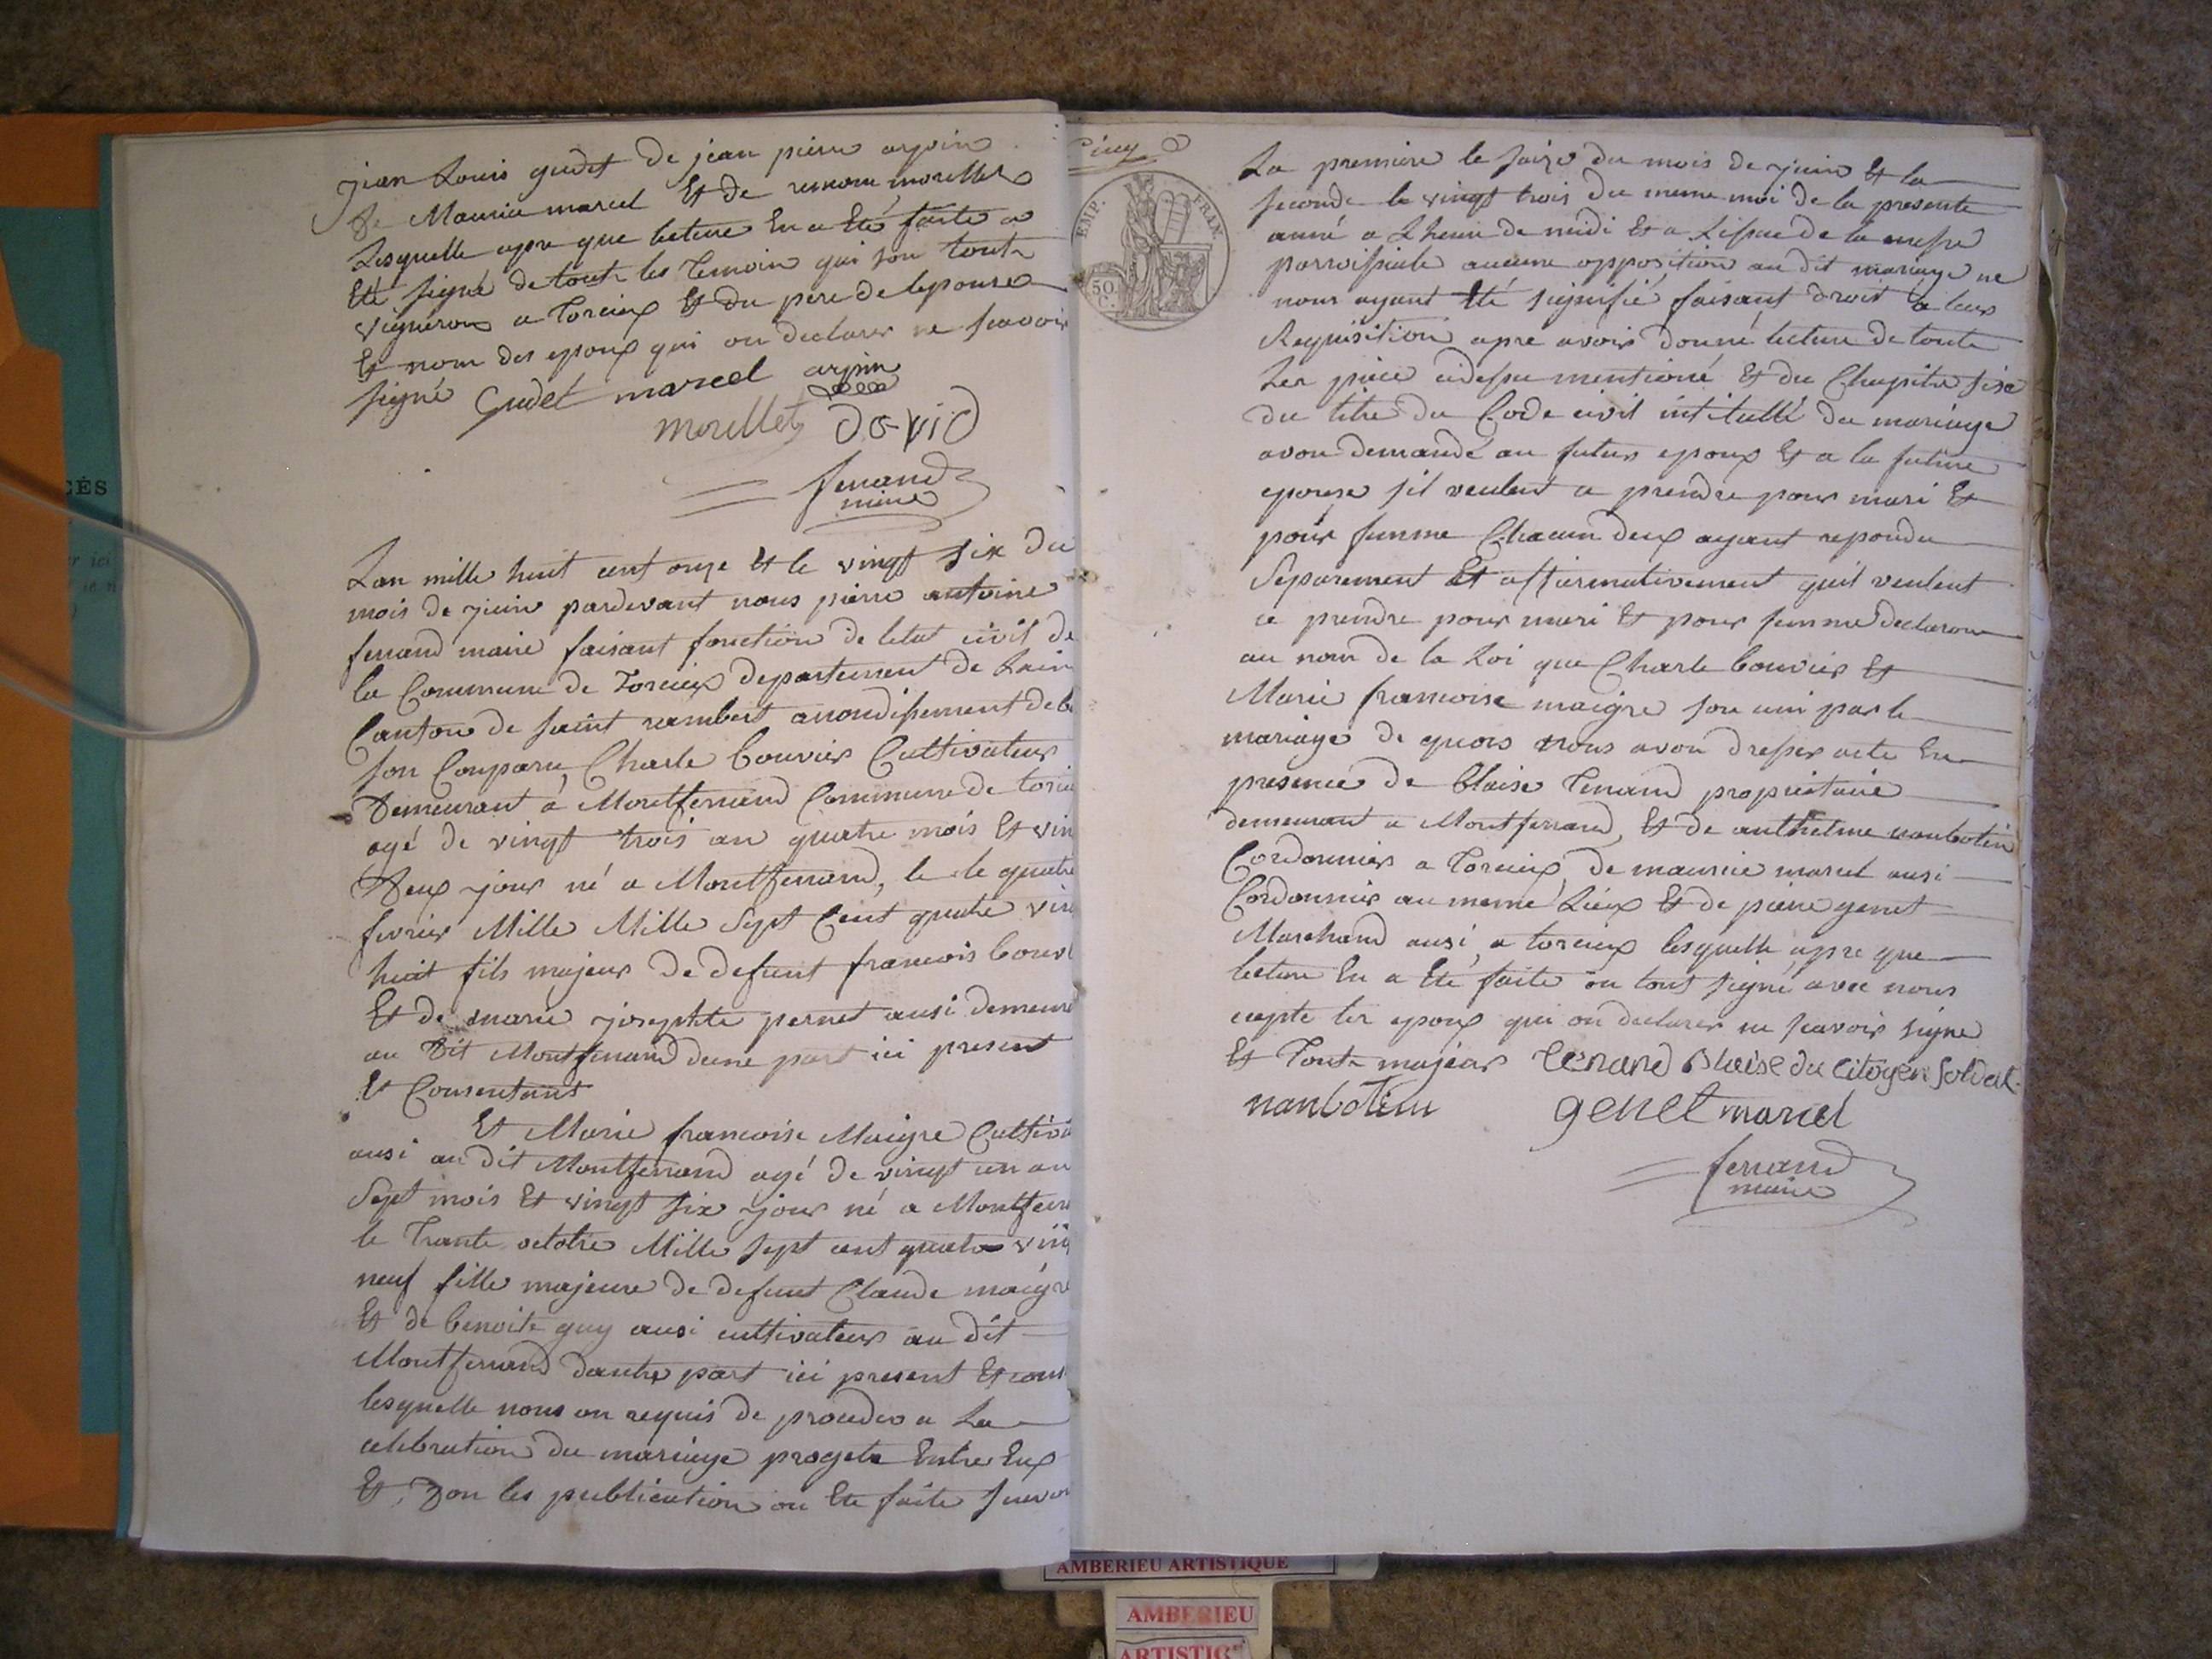 jean Louis gudet de jean pierre arpin
de Maurice marcel Et de morellet
Lesquelle apre que lecture En a Eté faite a
Eté signé de toute les Temoin qui son toute
vignerons a Torcieux Et du pere de lepouse
Et nom des epoux qui on declarer ne scavoir
signé Gudet marcel arpin
morellet david
ferrand
maire
Lan mille huit cent onze Et le vingt six du
mois de juin pardevant nous pierre antoine
ferrand maire faisant fonction de letat civil de
la Commune de Torcieux departement de Lain
Canton de saint rambert arrondissement de be
son Conparu Charle bouvier Cultivateur
Demeurant a Montferrand Commune de torcie
agé de vingt trois an quatre mois Et vin
Deux jour né a Montferrand, le le quatre
fevrier Mille Mille Sept Cent quatre vin
huit fils majeur de defunt francois bouv
Et de marie josephte pernet ausi demeur
au Dit Montferrand dune part ici present
Et Consentant
Et Marie francoise Maigre Cultiva
ausi au dit Montferrand agé de vingt un an
Sept mois Et vingt six jour né a Montferr
le Trante octobre Mille sept cent quatre ving
neuf fille majeure de defunt Claude maigre
Et de benoite guy ausi cultivateur au dit
Montferrand dautre part ici present Et cons
lesquelle nous on requis de proceder a La
celebration du mariage progete Entre Eux
Et Don les publication on Ete faite savoir
DÉCÈS
EMP. FRAN.
50 C.
La premiere le saize du mois de juin Et la
seconde le vingt trois du meme moi de la presente
anné a Lheure de midi Et a Lissue de la messe
parroissiale aucune opposition au dit mariage ne
nous ayant Eté signifié, faisant droit a leur
Requisition apre avoir donné lecture de toute
Les piece cidessu mentioné Et du Chapitre sixe
du titre du Code civil intitullé du mariage
avon demandé au futur epoux Et a la future
epouse sil veulent ce prendre pour mari Et
pour femme Chacun deux ayant repondu
Separement Et affirmativement quil veulent
ce prendre pour mari Et pour femme declaron
au nom de la Loi que Charle bouvier Et
Marie francoise maigre son uni par le
mariage de quois nous avon dresser acte En
presence de blaise Tenand proprietaire
demeurant a Montferrand, Et de anthelme nanbotin
Cordonnier a Torcieux, de maurice marcel ausi
Cordonnier au meme Lieux Et de pierre genet
Marchand ausi, a torcieux lesquelle apre que
lecture En a Eté faite on tout signé avec nous
cepte les epoux qui on declarer ne scavoir signe
Et Toute majeur Tenand Blaise du citoyen soldat
nanbotin genet marcel
ferrand
maire
AMBERIEU ARTISTIQUE
AMBERIEU